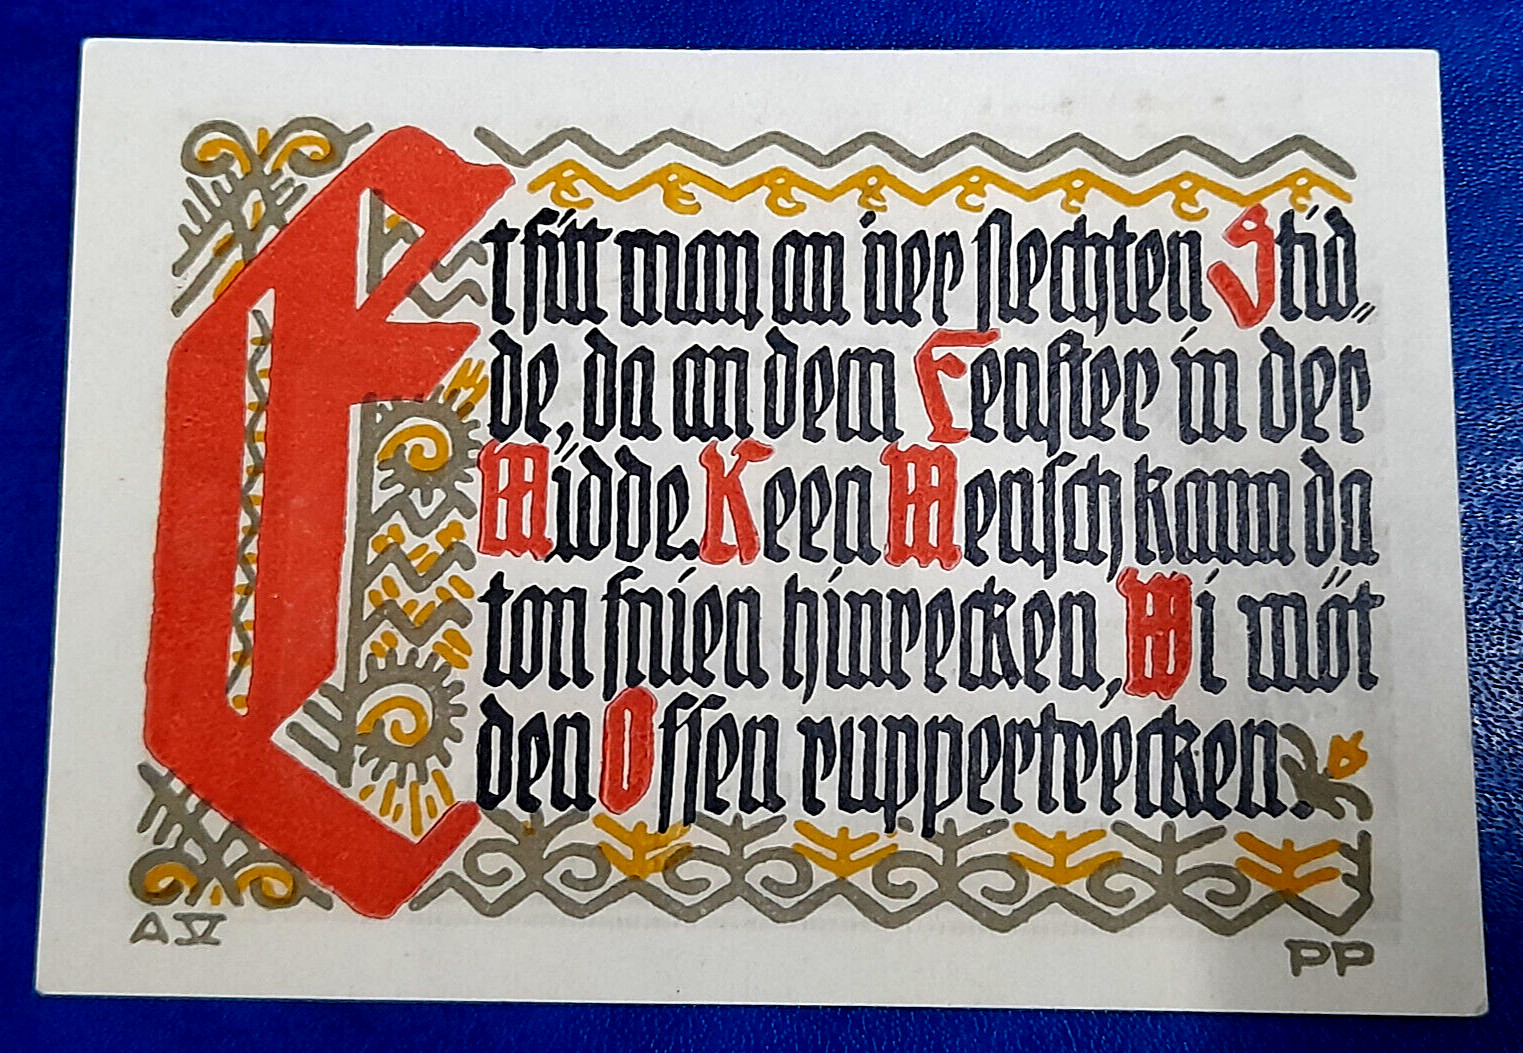 Et sitt man an iner slechten Stid=
de, da an dem Fenster in der
Midde. Keen Mensch kann da
ton snien hinrecken, Wi möt
den Ossen ruppertrecken.
AV
PP